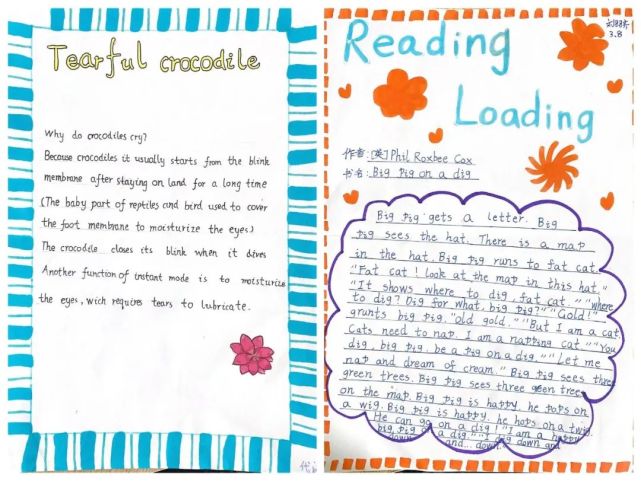 Tearful crocodile
Why do crocodiles cry?
Because crocodiles it usually starts from the blink
membrane after staying on land for a long time
(The baby part of reptiles and bird used to cover
the foot membrane to moisturize the eyes)
The crocodile closes its blink when it dives
Another function of instant mode is to moisturize
the eyes, wich requires tears to lubricate.
Reading
3.8
Loading
作者:[英]Phil Roxbee Cox
书名:Big Pig on a dig
Big Pig gets a letter. Big
Pig sees the hat. There is a map
in the hat. Big Pig runs to fat cat.
"Fat cat! look at the map in this hat."
"It shows where to dig, fat cat." "where
to dig? Dig for what, big pig?" "Gold!"
grunts big pig. "old gold." "But I am a cat.
Cats need to nap. I am a napping cat" "You
dig, big pig, be a pig on a dig." "Let me
nap and dream of cream." Big pig sees three
green trees. Big pig sees three green trees
on the map. Big pig is happy. he pops on
a wig. Big pig is happy. he hops on a twig.
He can go on a dig! "I am a happy
big pig on a dig" "I dig down and
down and down.